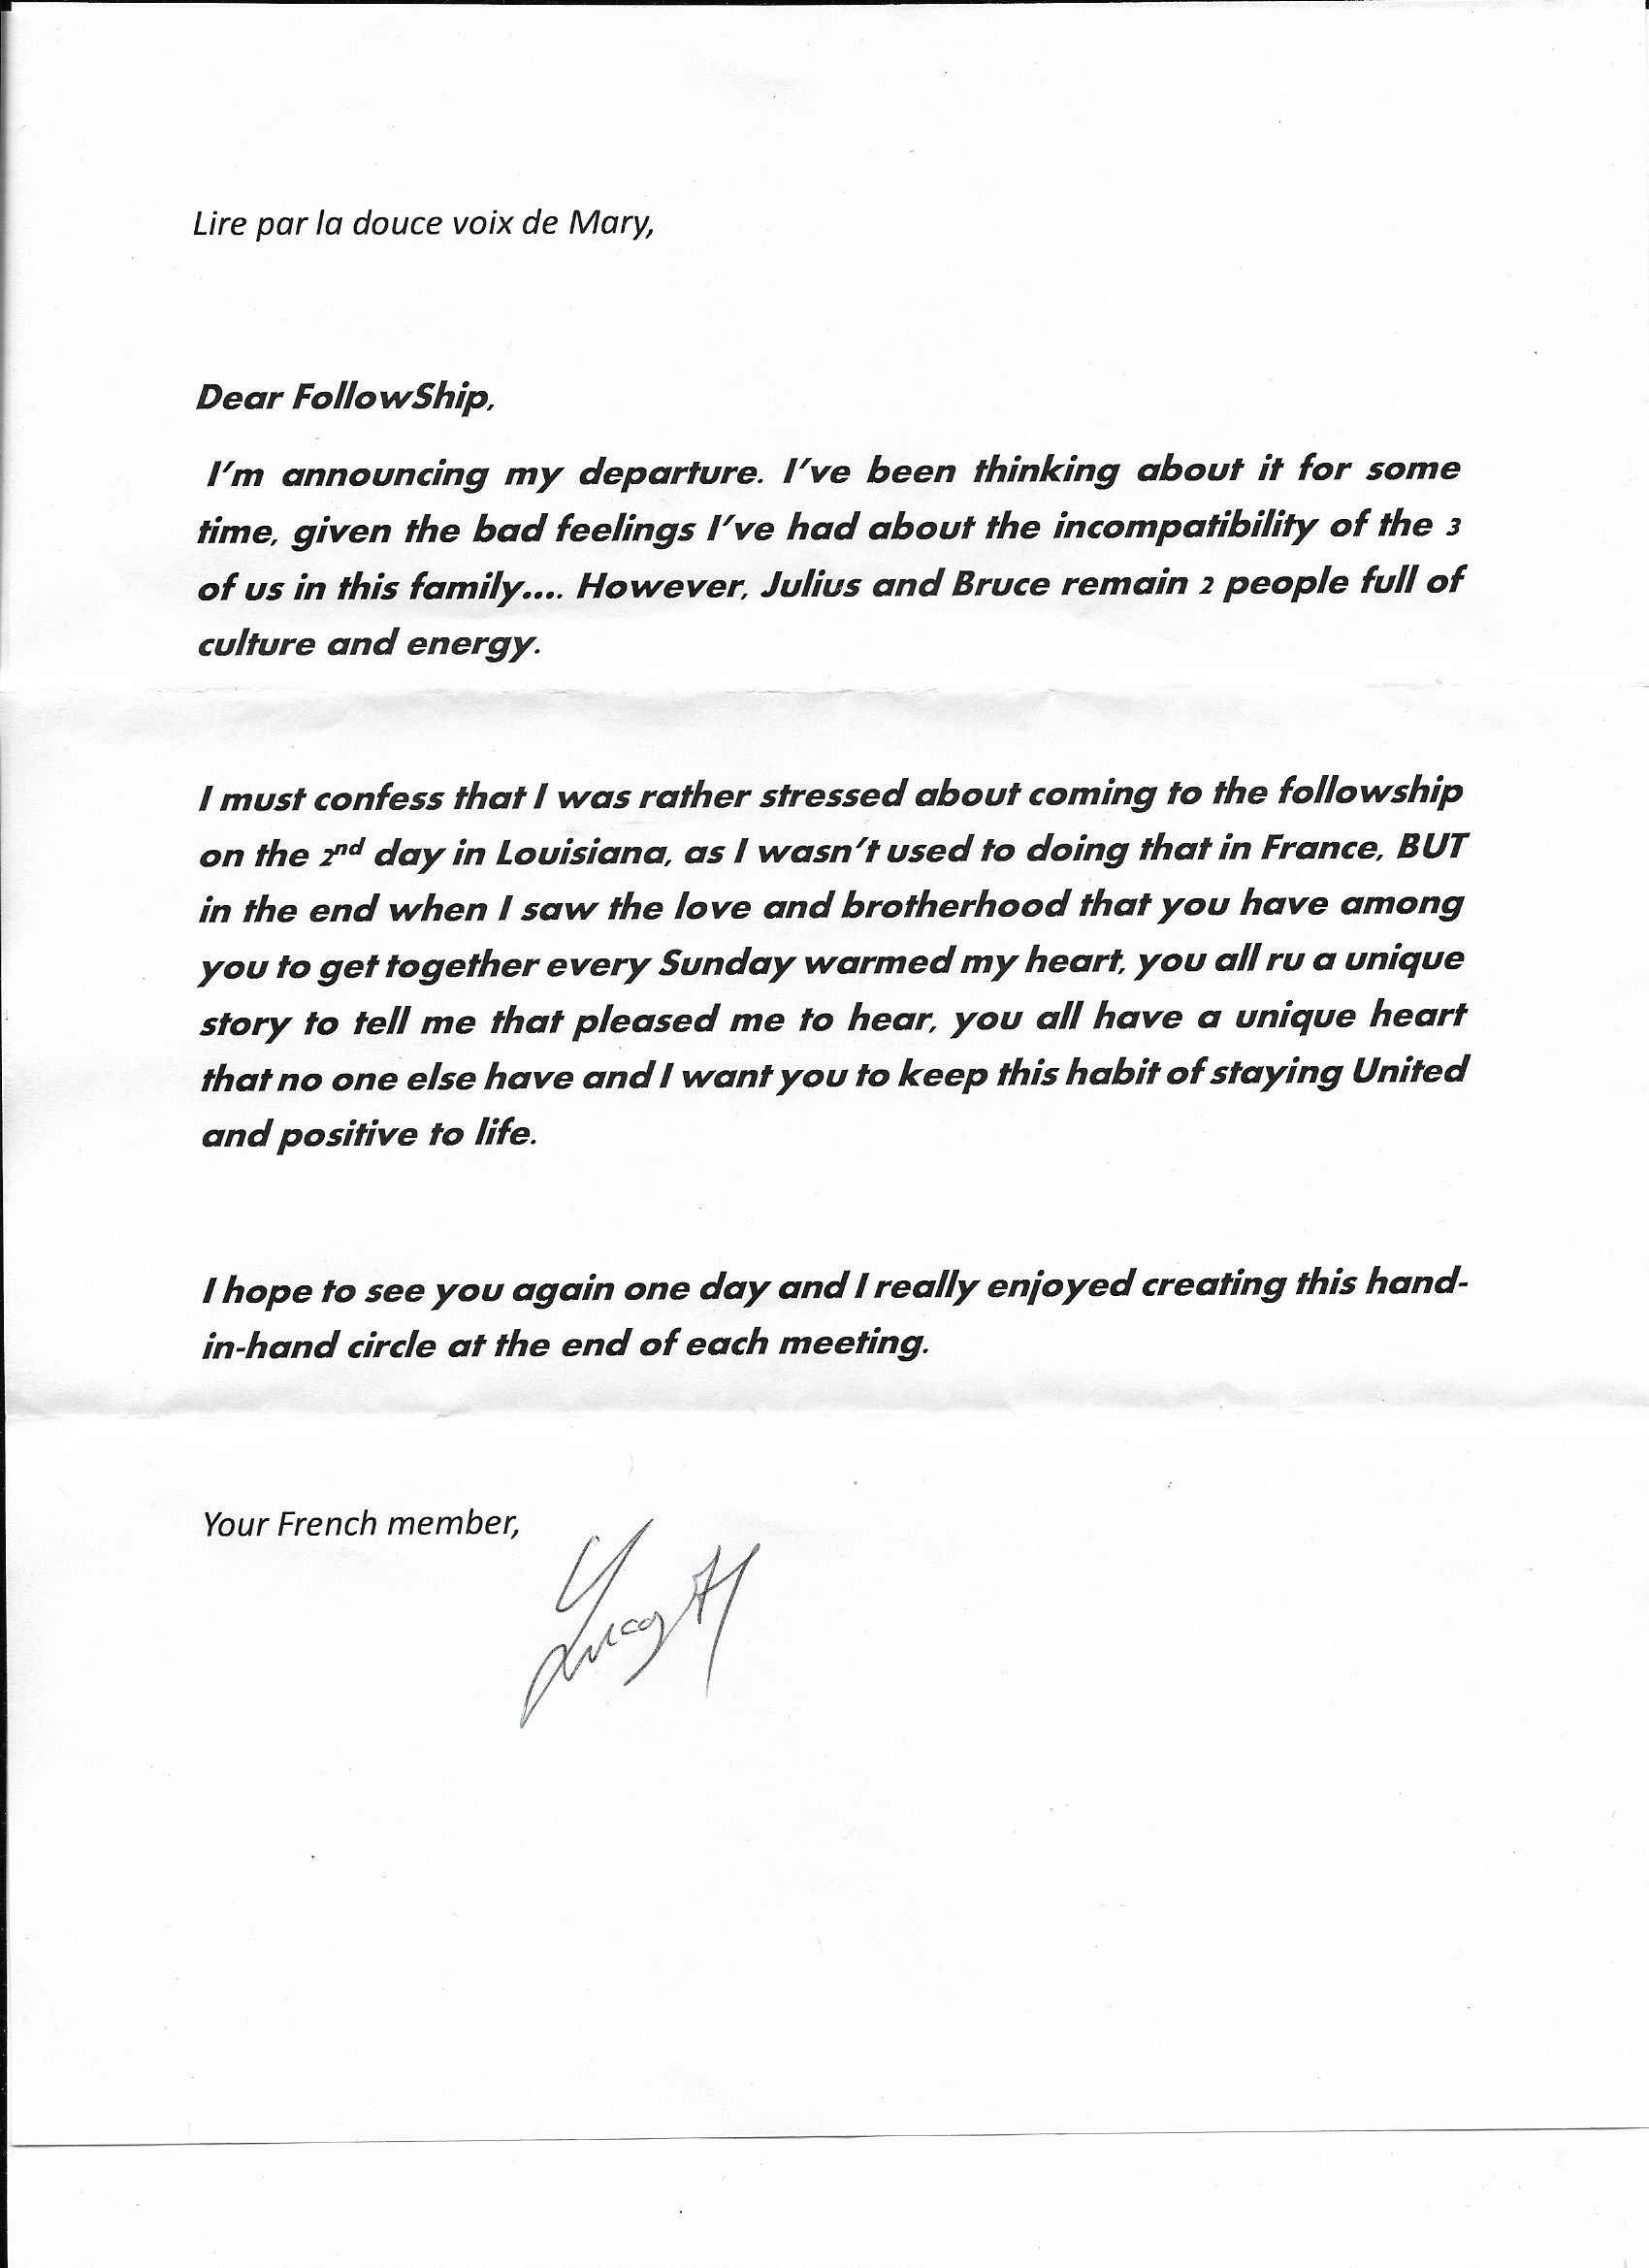 Lire par la douce voix de Mary,
Dear FollowShip,
I'm announcing my departure. I've been thinking about it for some
time, given the bad feelings I've had about the incompatibility of the 3
of us in this family.... However, Julius and Bruce remain 2 people full of
culture and energy.
I must confess that I was rather stressed about coming to the followship
on the 2nd day in Louisiana, as I wasn't used to doing that in France, BUT
in the end when I saw the love and brotherhood that you have among
you to get together every Sunday warmed my heart, you all ru a unique
story to tell me that pleased me to hear, you all have a unique heart
that no one else have and I want you to keep this habit of staying United
and positive to life.
I hope to see you again one day and I really enjoyed creating this hand-
in-hand circle at the end of each meeting.
Your French member,